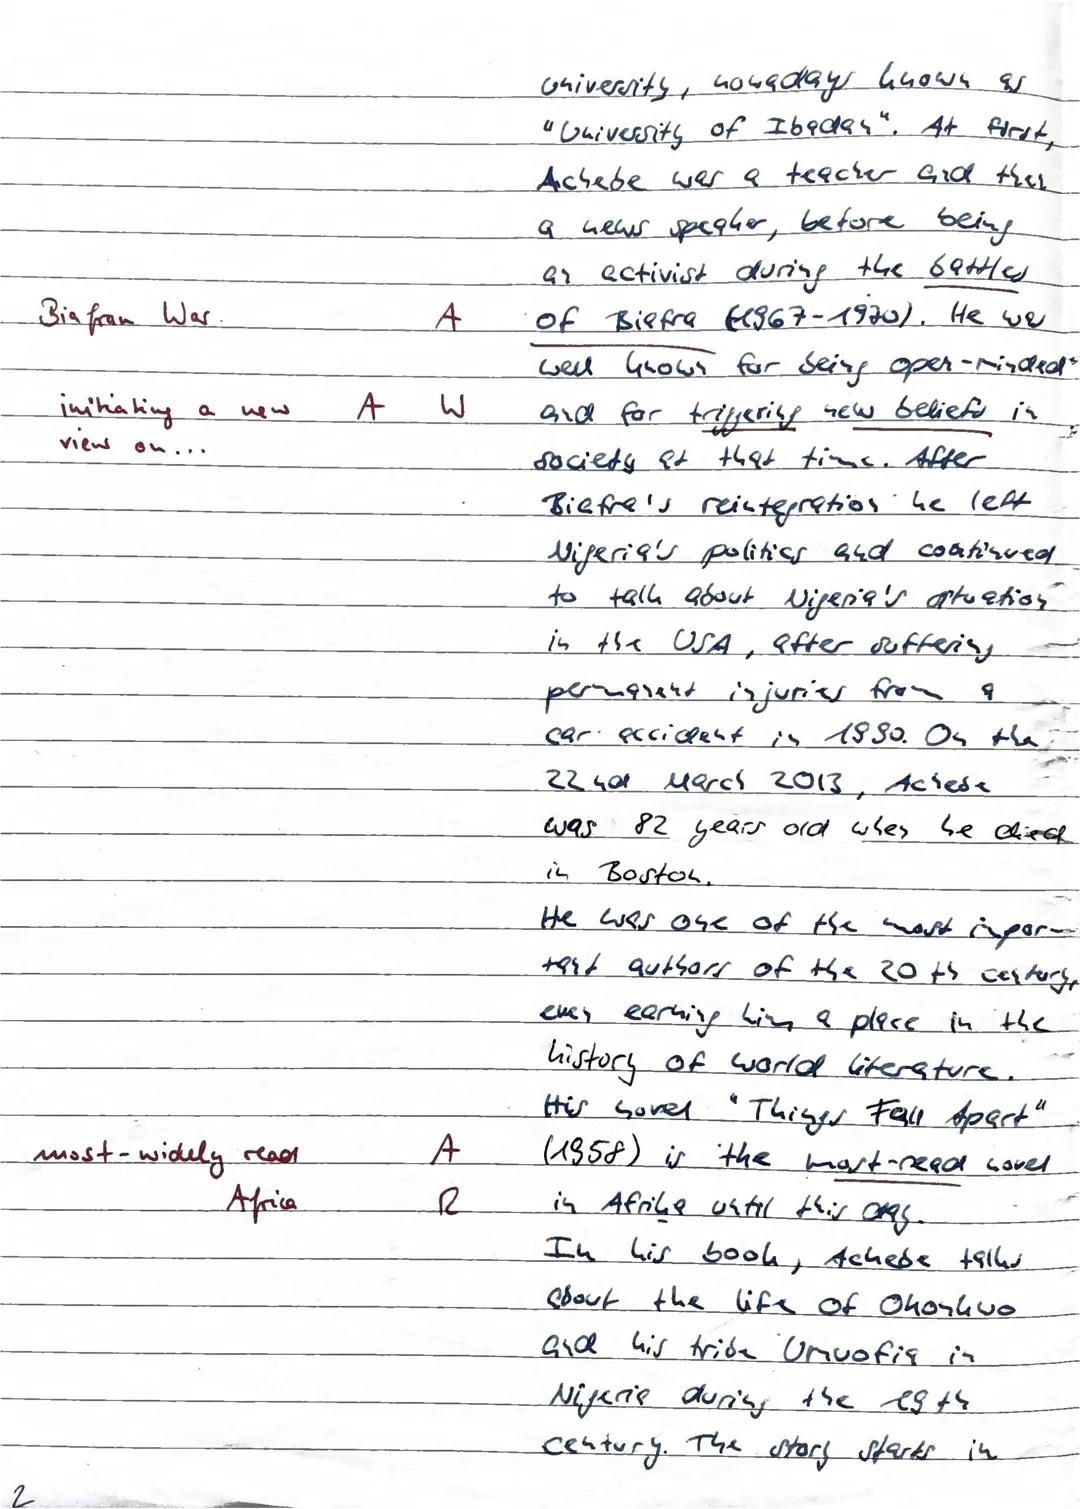 university, nowadays known as
"University of Ibadan". At first,
Achebe was a teacher and then
a news speaker, before being
an activist during the battles
Biafran War. A of Biafra (1967-1970). He was
well known for being open-minded
initiating a new A W and for triggering new beliefs in
view on... society at that time. After
Biafra's reintegration he left
Nigeria's politics and continued
to talk about Nigeria's situation
in the USA, after suffering
permanent injuries from a
car accident in 1990. On the
22nd March 2013, Achebe
was 82 years old when he died
in Boston.
He was one of the most impor-
tant authors of the 20th century,
even earning him a place in the
history of world literature.
His novel "Things Fall Apart"
most-widely read A (1958) is the most-read novel
Africa R in Afrika until this day.
In his book, Achebe talks
about the life of Okonkwo
and his tribe Umuofia in
Nigeria during the 19th
century. The story starts in
2